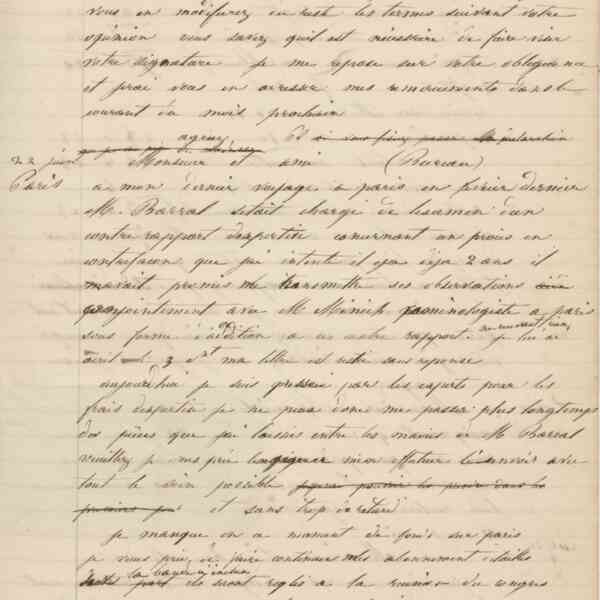 vous en modifierez du reste les termes suivant votre
opinion vous savez qu'il est nécessaire de faire viser
votre signature je me repose sur votre obligeance
et j'irai vous en adresser mes remerciements dans le
courant du mois prochain
agreez
du 2 juin Monsieur et ami (Bureau)
Paris a mon dernier voyage a paris en fevrier dernier
M. Barral s'etait chargé de l'examin d'un
contre rapport d'expertise concernant un procès en
contrefacon que j'ai intenté il y a deja 2 ans il
m'avait promis de transmettre ses observations
conjointement avec M Minich a paris
sous forme d'addition a un autre rapport. je lui ai
écrit le 3 ma lettre est restée sans reponse
aujourd'hui je suis pressé par les experts pour les
frais d'expertise je ne puis donc me passer plus longtemps
des pièces que j'ai laissés entre les mains de M Barral
veuillez je vous prie mon affaire avec
tout le soin possible
et sans trop de retard
je manque en ce moment de fonds sur paris
je vous prie de faire continuer mes abonnement
ils seront reglés a la reunion du congres